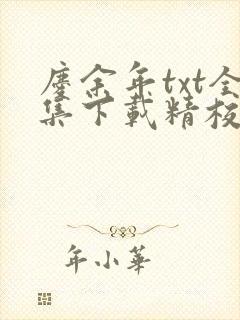 廑余年txt全
集下載精校
年小華